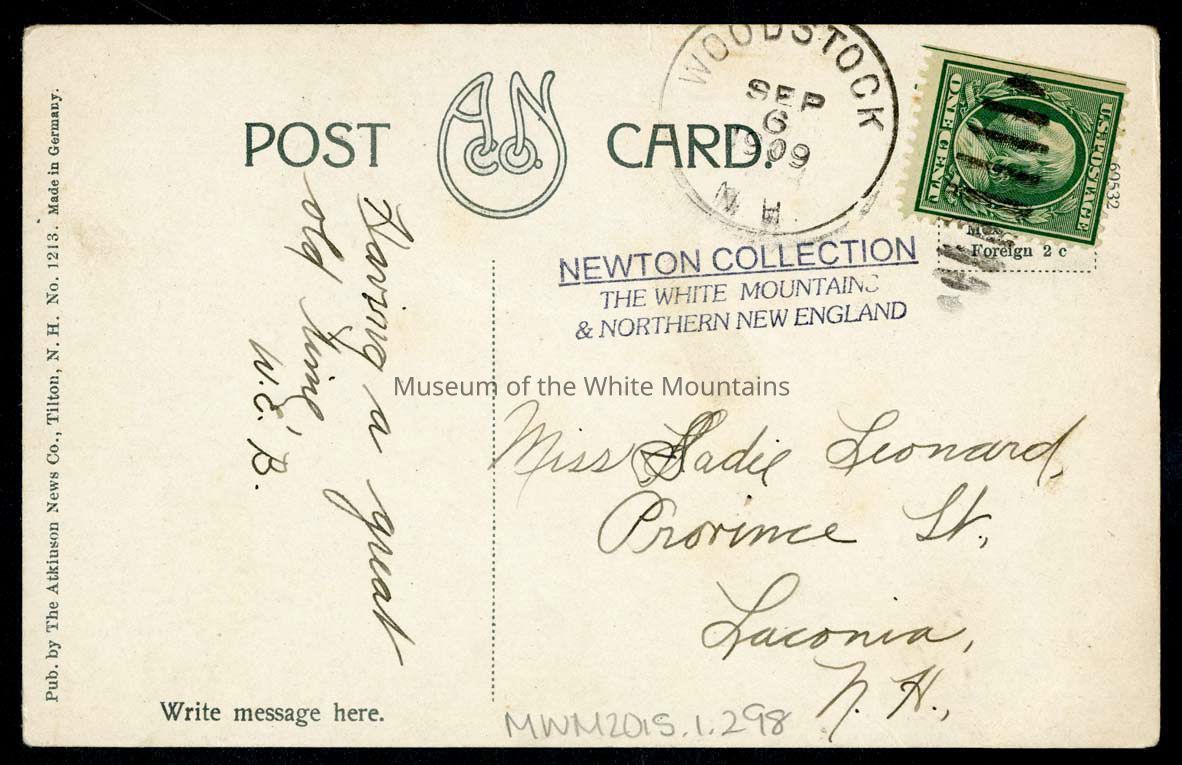 Pub. by The Atkinson News Co., Tilton, N. H. No. 1213. Made in Germany.
POST CARD.
A N CO.
WOODSTOCK
SEP
6
1909
N H
U.S. POSTAGE
ONE CENT
69532
Foreign 2 c
NEWTON COLLECTION
THE WHITE MOUNTAINS
& NORTHERN NEW ENGLAND
Having a great
old time
W. E. B.
Museum of the White Mountains
Miss Sadie Leonard,
Province St.,
Laconia,
N. H.,
Write message here.
MWM2015.1.298